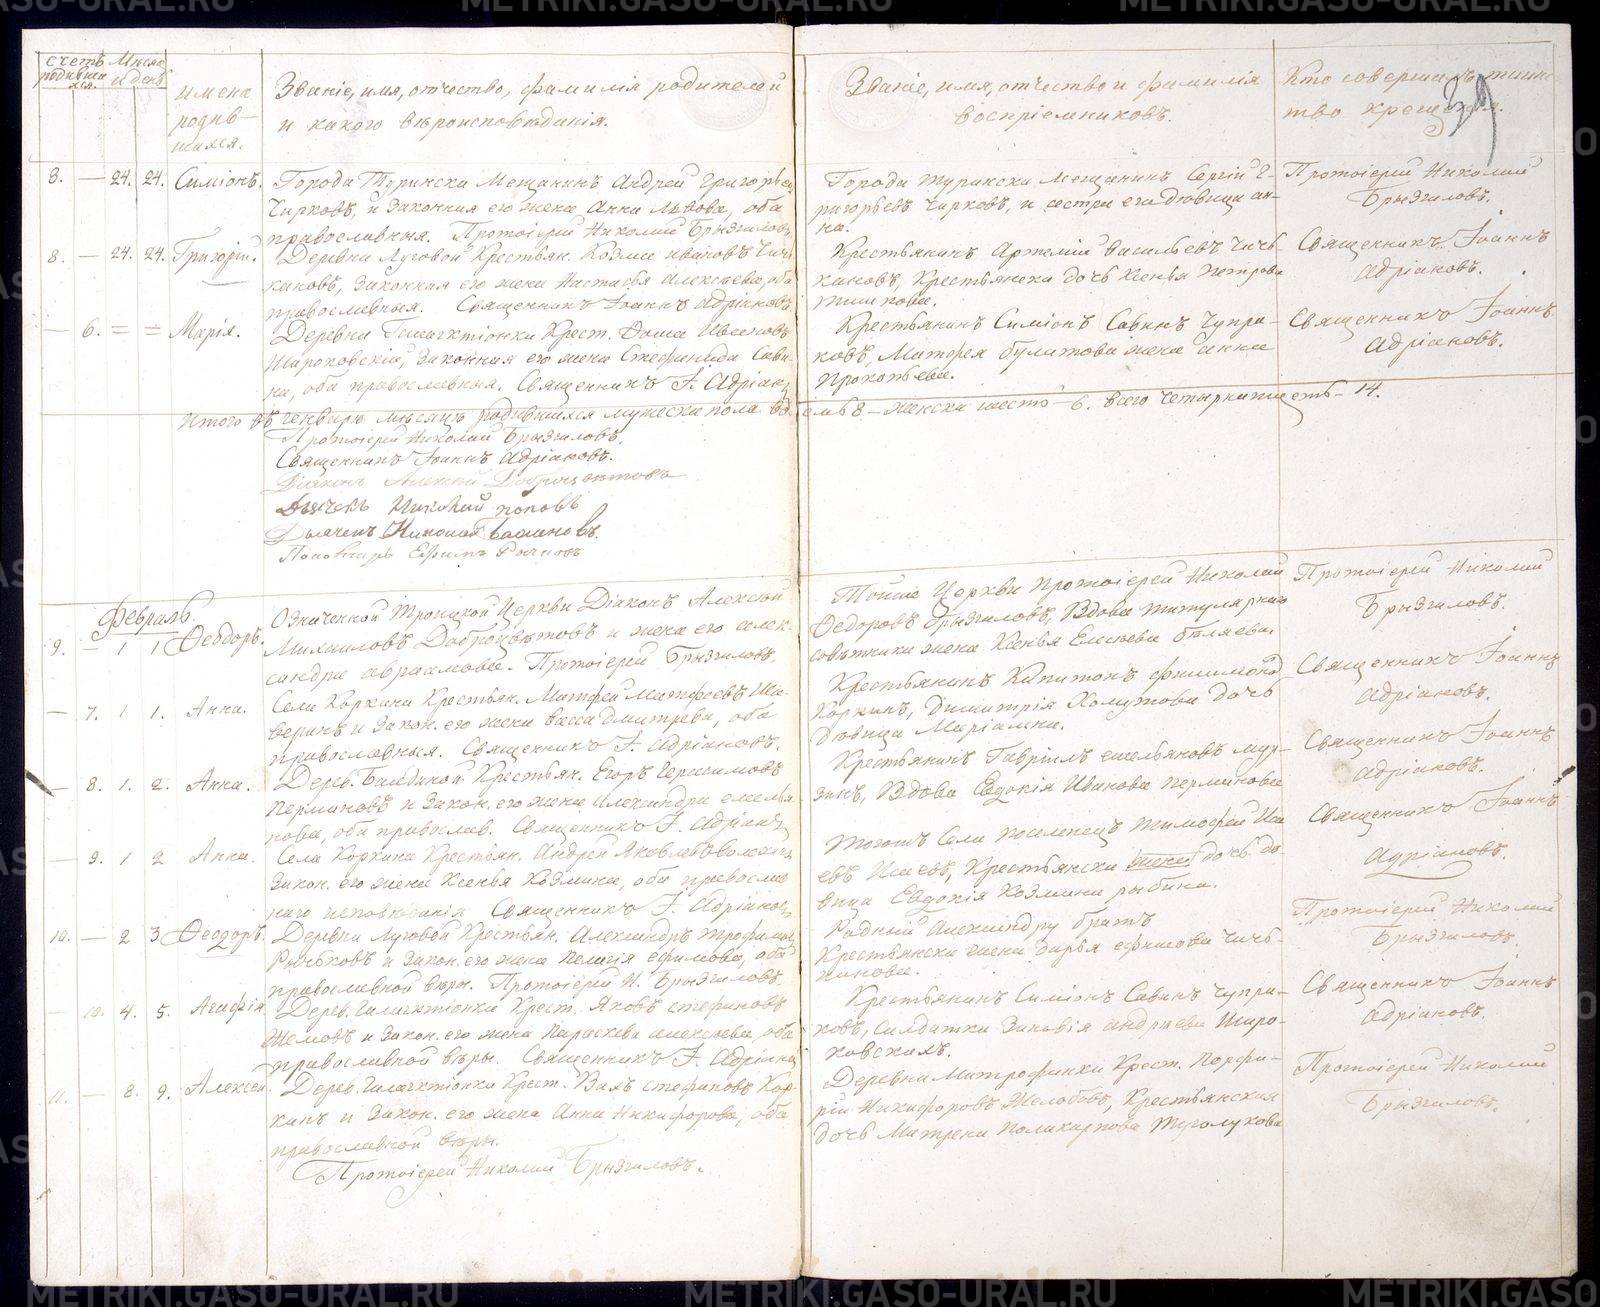 счетъ родившихся.
Мѣсяц и день
имена родившихся.
Званіе, имя, отчество, фамилія родителей
и какого вѣроисповѣданія.
Званіе, имя, отчество и фамилія
воспріемниковъ.
Кто совершилъ таинство крещенія.
39
8. — 24. 24. Симіонъ.
Города Туринска Мещанинъ Андрей Григорьевъ
Чирковъ, и законная его жена Анна Львова, оба
православныя. Протоіерей Николай Брызгаловъ.
Города Туринска Мещанинъ Сергій Григорьевъ Чирковъ, и сестра его дѣвица Анна.
Протоіерей Николай
Брызгаловъ.
8. — 24. 24. Григорій.
Деревни Луговой Крестьян. Козма Ивановъ Чичкановъ, законная его жена Настасья Алексѣева, оба
православныя. Священникъ Іоаннъ Адріановъ.
Крестьянинъ Артемій Васильевъ Чичькановъ, Крестьянска дочь Ксенья Петрова
Священникъ Іоаннъ
Адріановъ.
— 6. = = Марія.
Деревни Галактіонки Крест. Фома Ивановъ
Широковскій, законная его жена Стефанида Савина, оба православныя. Священникъ І. Адріановъ
Крестьянинъ Симіонъ Савинъ Чупраковъ, Матфея Булатова жена Анна
Прокопьева.
Священникъ Іоаннъ
Адріановъ.
Итого въ генварѣ мѣсяцѣ родившихся мужеска пола восемь 8 — женска шесть — 6. всего четырнатцеть — 14.
Протоіерей Николай Брызгаловъ.
Священникъ Іоаннъ Адріановъ.
Діаконъ Алексѣй Доброцвѣтовъ
Дьячекъ Николай Поповъ
Дьячекъ Николай
Пономарь Ефимъ
Февраль.
9. — 1 1 Феодоръ.
Означенной Троицкой Церкви Діаконъ Алексѣй
Михаиловъ Доброцвѣтовъ и жена его Александра Авраамова. Протоіерей Брызгаловъ.
Тойже Церкви Протоіерей Николай
Федоровъ Брызгаловъ, Вдова титулярнаго
совѣтника жена Ксенья Елисѣева Бѣляева.
Протоіерей Николай
Брызгаловъ.
— 7. 1 1. Анна.
Села Коркина Крестьян. Матфей Матфеевъ Шаверинъ и Закон. его жена Васса Дмитрева, оба
православныя. Священникъ І. Адріановъ.
Крестьянинъ Капитонъ Филимоновъ
Коркинъ, Димитрія Хомутова дочь
дѣвица Маріамна.
Священникъ Іоаннъ
Адріановъ.
— 8. 1. 2. Анна.
Дерев. Крестьян. Егоръ Герасимовъ
Перминовъ и Закон. его жена Александра Емельянова, оба православ. Священникъ І. Адріановъ
Крестьянинъ Гавріилъ Емельяновъ Мурзинъ, Вдова Евдокія Иванова Перминова
Священникъ Іоаннъ
Адріановъ.
— 9. 1 2 Анна.
Села Коркина Крестьян. Андрей Яковлевъ
Закон. его жена Ксенья Козмина, оба православнаго исповѣданія Священникъ І. Адріановъ
Тогожъ Села поселенецъ Тимофей Исаевъ Исаевъ, Крестьянска жена дочь дѣвица Евдокія Козмина Рыбина.
Священникъ Іоаннъ
Адріановъ.
10. — 2 3 Феодоръ.
Деревни Луговой Крестьян. Александръ Трофимовъ
Рычьковъ и Закон. его жена Пелагія Ефимова, оба
православной вѣры. Протоіерей Н. Брызгаловъ.
Родный Александру братъ
Крестьянска жена Дарья Ефимова Чичьканова.
Протоіерей Николай
Брызгаловъ.
— 10. 4. 5. Агафія
Дерев. Галактіонки Крест. Яковъ Стефановъ
и Закон. его жена Параскева Алексѣева, оба
православной вѣры. Священникъ І. Адріановъ
Крестьянинъ Симіонъ Савинъ Чупраковъ, Салдатка Зиновія Андрѣева Широковскихъ.
Священникъ Іоаннъ
Адріановъ.
11. — 8. 9. Алексѣй.
Дерев. Галактіонки Крест. Стефановъ Коркинъ и Закон. его жена Анна Никифорова, оба
православной вѣры.
Протоіерей Николай Брызгаловъ.
Деревни Митрофанки Крест. Порфирій Никифоровъ Желобовъ, Крестьянская
дочь Матрена Поликарпова Туголукова
Протоіерей Николай
Брызгаловъ.
METRIKI.GASO-URAL.RU